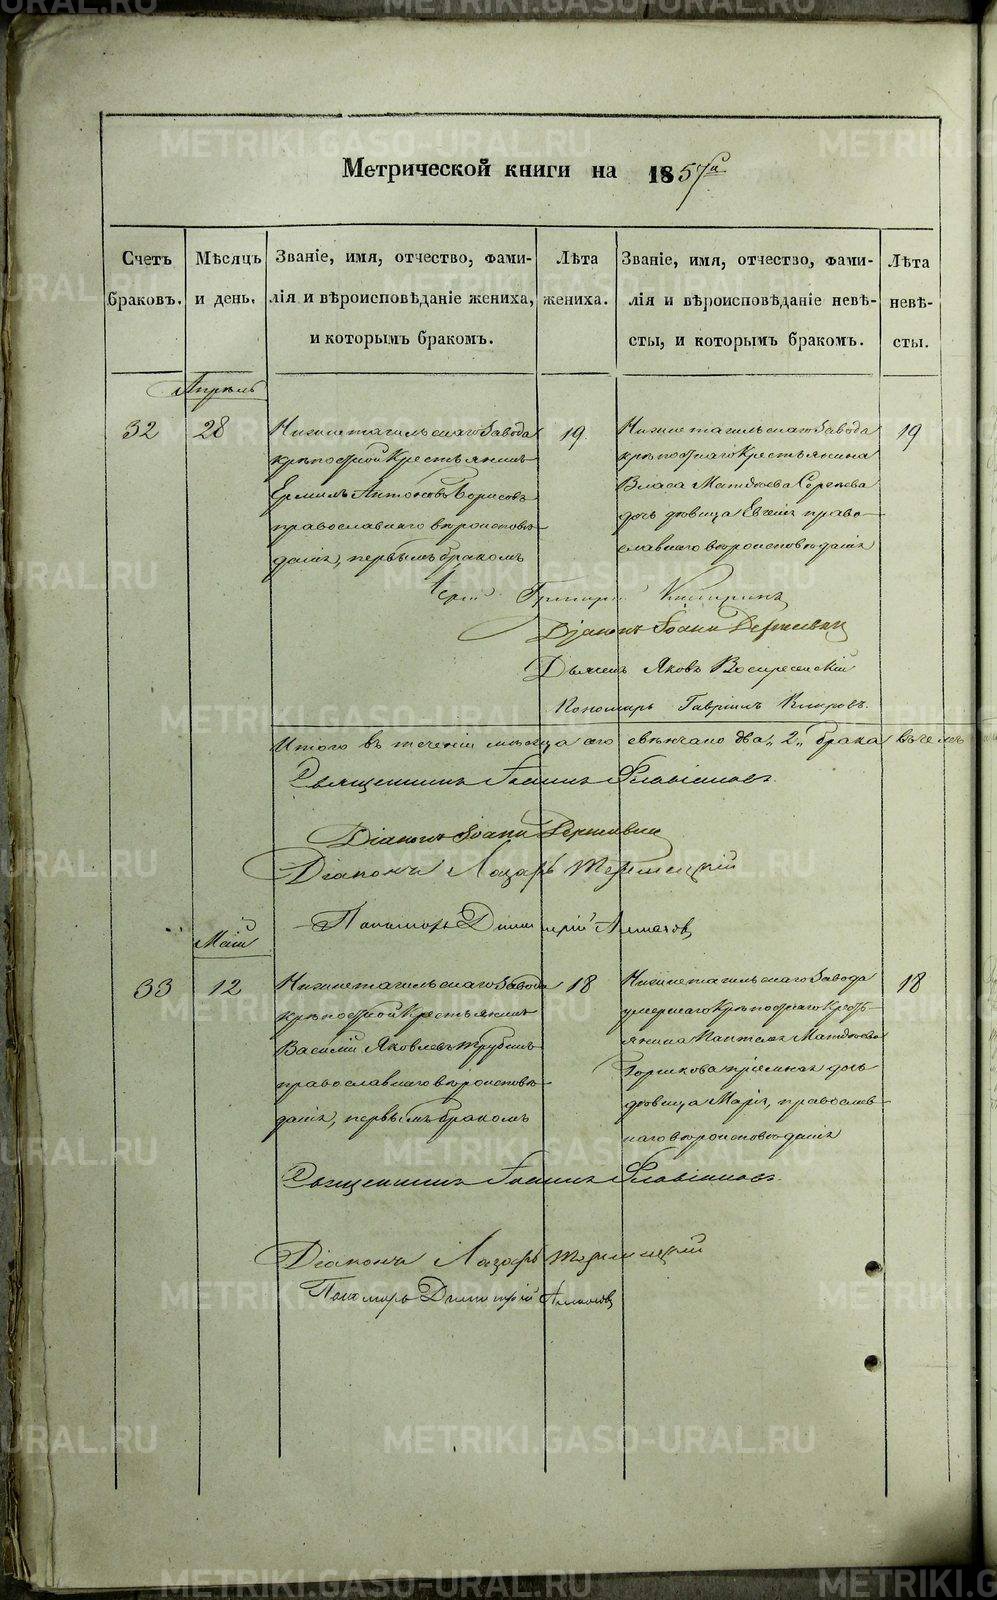 Метрической книги на 1857й
Счетъ браковъ.
Мѣсяцъ и день.
Званіе, имя, отчество, фами-
лія и вѣроисповѣданіе жениха,
и которымъ бракомъ.
Лѣта жениха.
Званіе, имя, отчество, фами-
лія и вѣроисповѣданіе невѣ-
сты, и которымъ бракомъ.
Лѣта невѣ-
сты.
Апрѣль
32
28
Нижнетагильскаго Завода
крѣпостной Крестьянинъ
Ермилъ Антоновъ Борисовъ
православнаго вѣроисповѣ-
данія, первымъ бракомъ
19
Нижнетагильскаго Завода
крѣпостнаго Крестьянина
Власа Матвѣева Сергѣева
дочь дѣвица Евгенія право-
славнаго вѣроисповѣданія
19
Іерей Григорій
Діаконъ Іоаннъ
Дьячекъ Яковъ Воскресенскій
Пономарь Гавріилъ Кипровъ.
Итого въ теченіи мѣсяца сего свѣнчано два „2„ брака
Священникъ Іоаннъ Флавіановъ.
Діаконъ Іоаннъ
Діаконъ Лазарь
Пономарь Димитрій
Май
33
12
Нижнетагильскаго Завода
крѣпостной Крестьянинъ
Василій Яковлевъ Трубинъ
православнаго вѣроисповѣ-
данія, первымъ бракомъ
18
Нижнетагильскаго Завода
умершаго Крѣпостнаго Кресть-
янина Пантелея Матвѣева
Горшкова пріемная дочь
дѣвица Марія, православ-
наго вѣроисповѣданія
18
Священникъ Іоаннъ Флавіановъ.
Діаконъ Лазарь
Пономарь Димитрій
METRIKI.GASO-URAL.RU